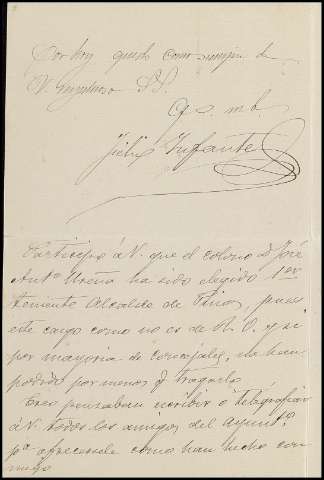 Por hoy queda como siempre de
V. afmo S.S.
q. s. m. b.
Felix Infante
Participo á V. que el colono D. José
Antº Ureña ha sido elegido 1er
teniente Alcalde de Pinos, pues
este cargo como no es de R. O. y si
por mayoria de concejales, no han
podido por menos q tragarlo.
Creo pensaban escribir o telégrafiar
á V. todos los amigos del Ayuntº
pª ofrecersele como han hecho con
migo